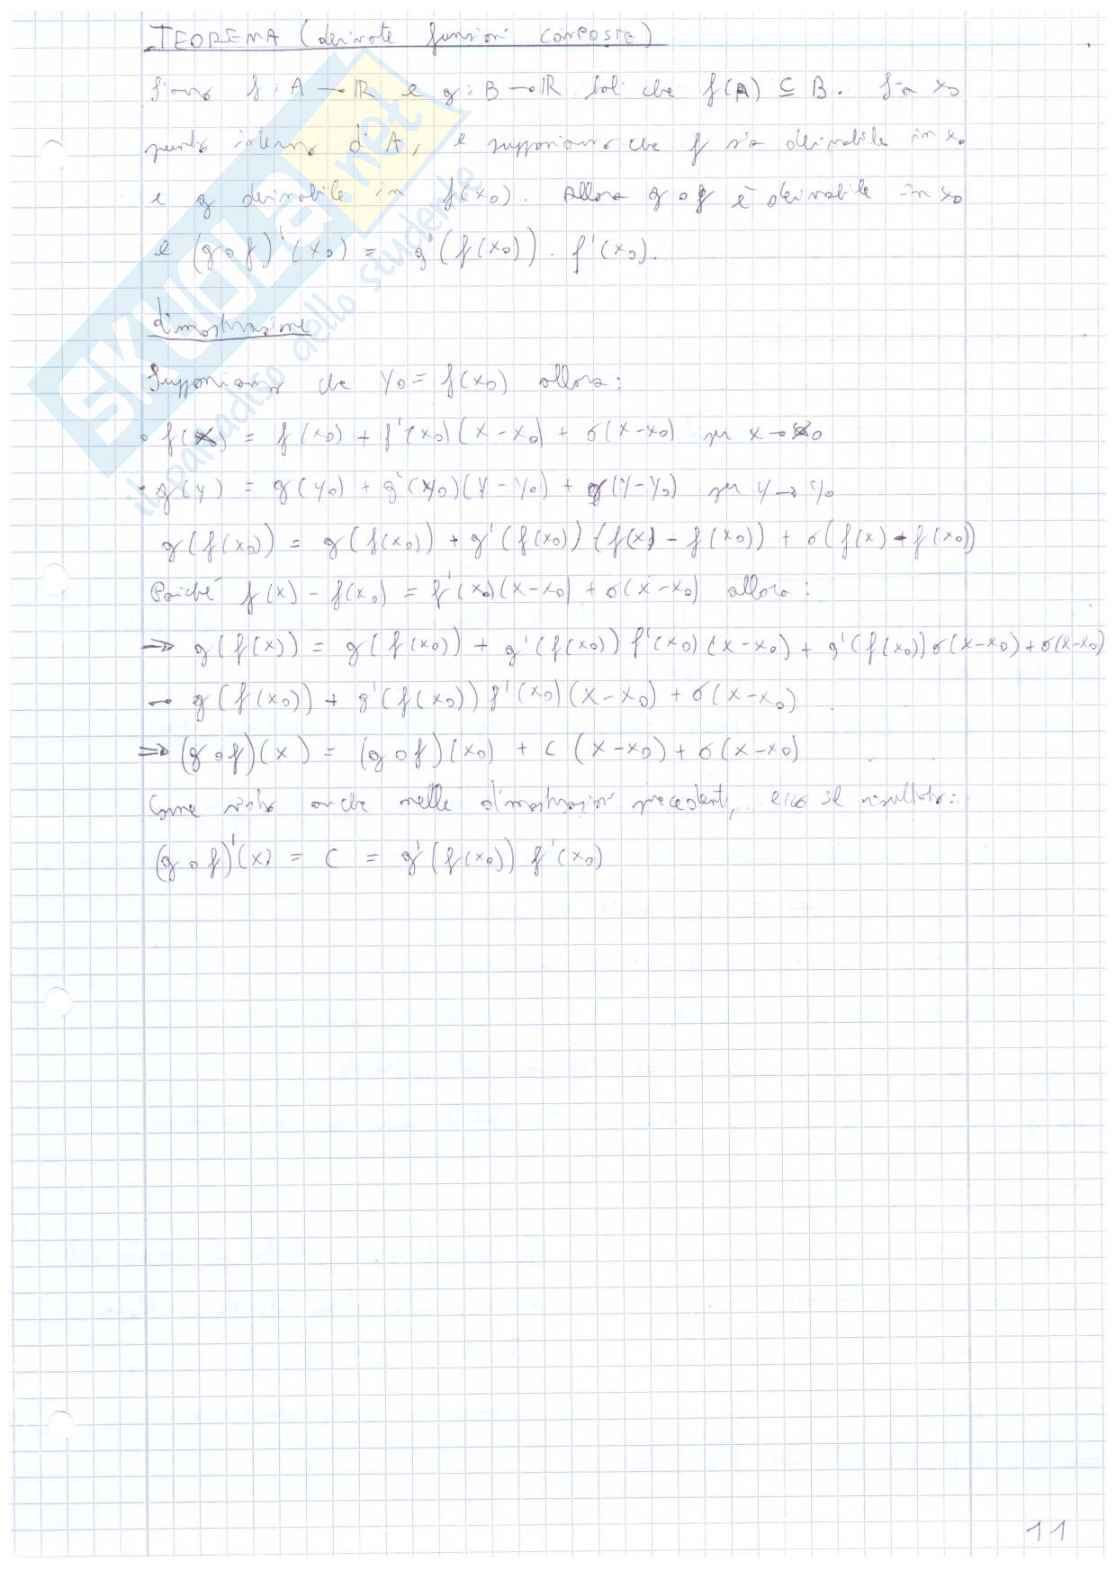 TEOREMA (derivate funzioni composte)
Siano f: A → ℝ e g: B → ℝ tali che f(A) ⊆ B. Sia x₀
punto interno di A, e supponiamo che f sia derivabile in x₀
e g derivabile in f(x₀). Allora g∘f è derivabile in x₀
e (g∘f)'(x₀) = g'(f(x₀)) · f'(x₀).
dimostrazione
Supponiamo che y₀ = f(x₀) allora:
• f(x) = f(x₀) + f'(x₀)(x-x₀) + σ(x-x₀) per x→x₀
• g(y) = g(y₀) + g'(y₀)(y-y₀) + σ(y-y₀) per y→y₀
g(f(x₀)) = g(f(x₀)) + g'(f(x₀)) · (f(x) - f(x₀)) + σ(f(x) - f(x₀))
Poiché f(x) - f(x₀) = f'(x₀)(x-x₀) + σ(x-x₀) allora:
⇒ g(f(x)) = g(f(x₀)) + g'(f(x₀)) f'(x₀)(x-x₀) + g'(f(x₀)) σ(x-x₀) + σ(x-x₀)
→ g(f(x₀)) + g'(f(x₀)) f'(x₀)(x-x₀) + σ(x-x₀)
⇒ (g∘f)(x) = (g∘f)(x₀) + c (x-x₀) + σ(x-x₀)
Come visto anche nelle dimostrazioni precedenti, ecco il risultato:
(g∘f)'(x) = c = g'(f(x₀)) f'(x₀)
11
SKUOLA.net
il paradiso dello studente